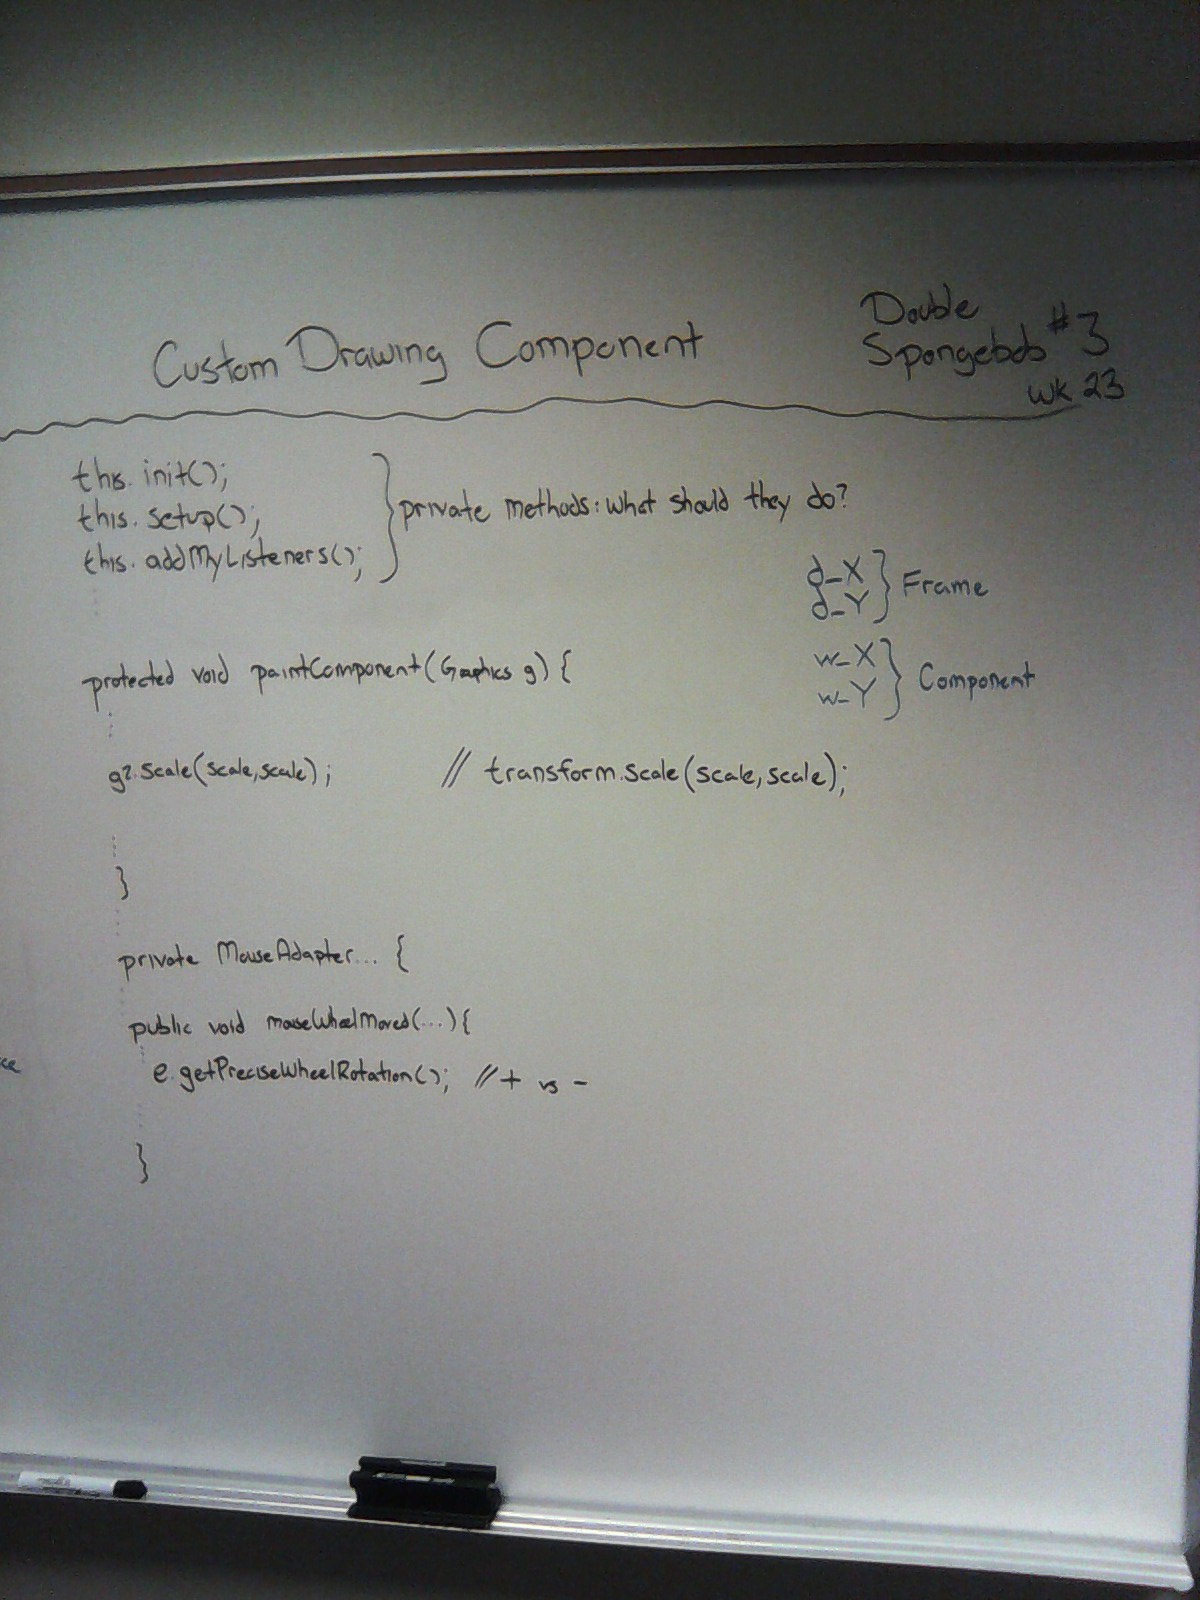 Custom Drawing Component
Double
Spongebob #3
wk 23
this.init();
this.setup();
this.addMyListeners();
private methods: what should they do?
d_X
d_Y
Frame
w_X
w_Y
Component
protected void paintComponent(Graphics g) {
g2.scale(scale,scale); // transform.scale(scale,scale);
}
private MouseAdapter... {
public void mouseWheelMoved(...){
e.getPreciseWheelRotation(); //+ vs -
}